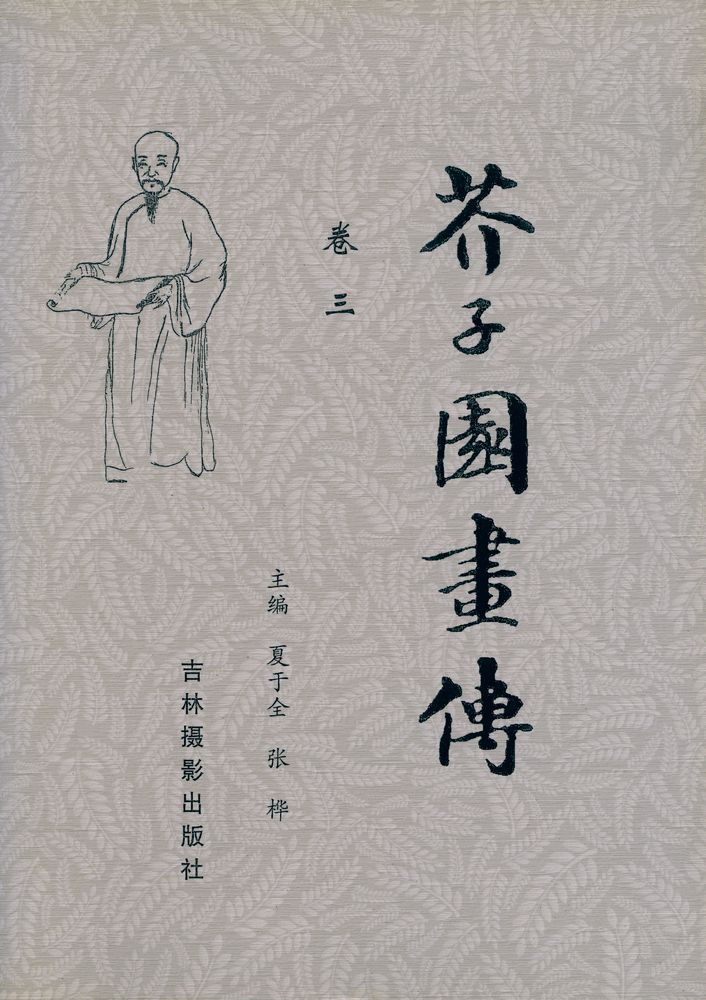 芥子園畫傳
卷三
主编 夏于全 张桦
吉林摄影出版社